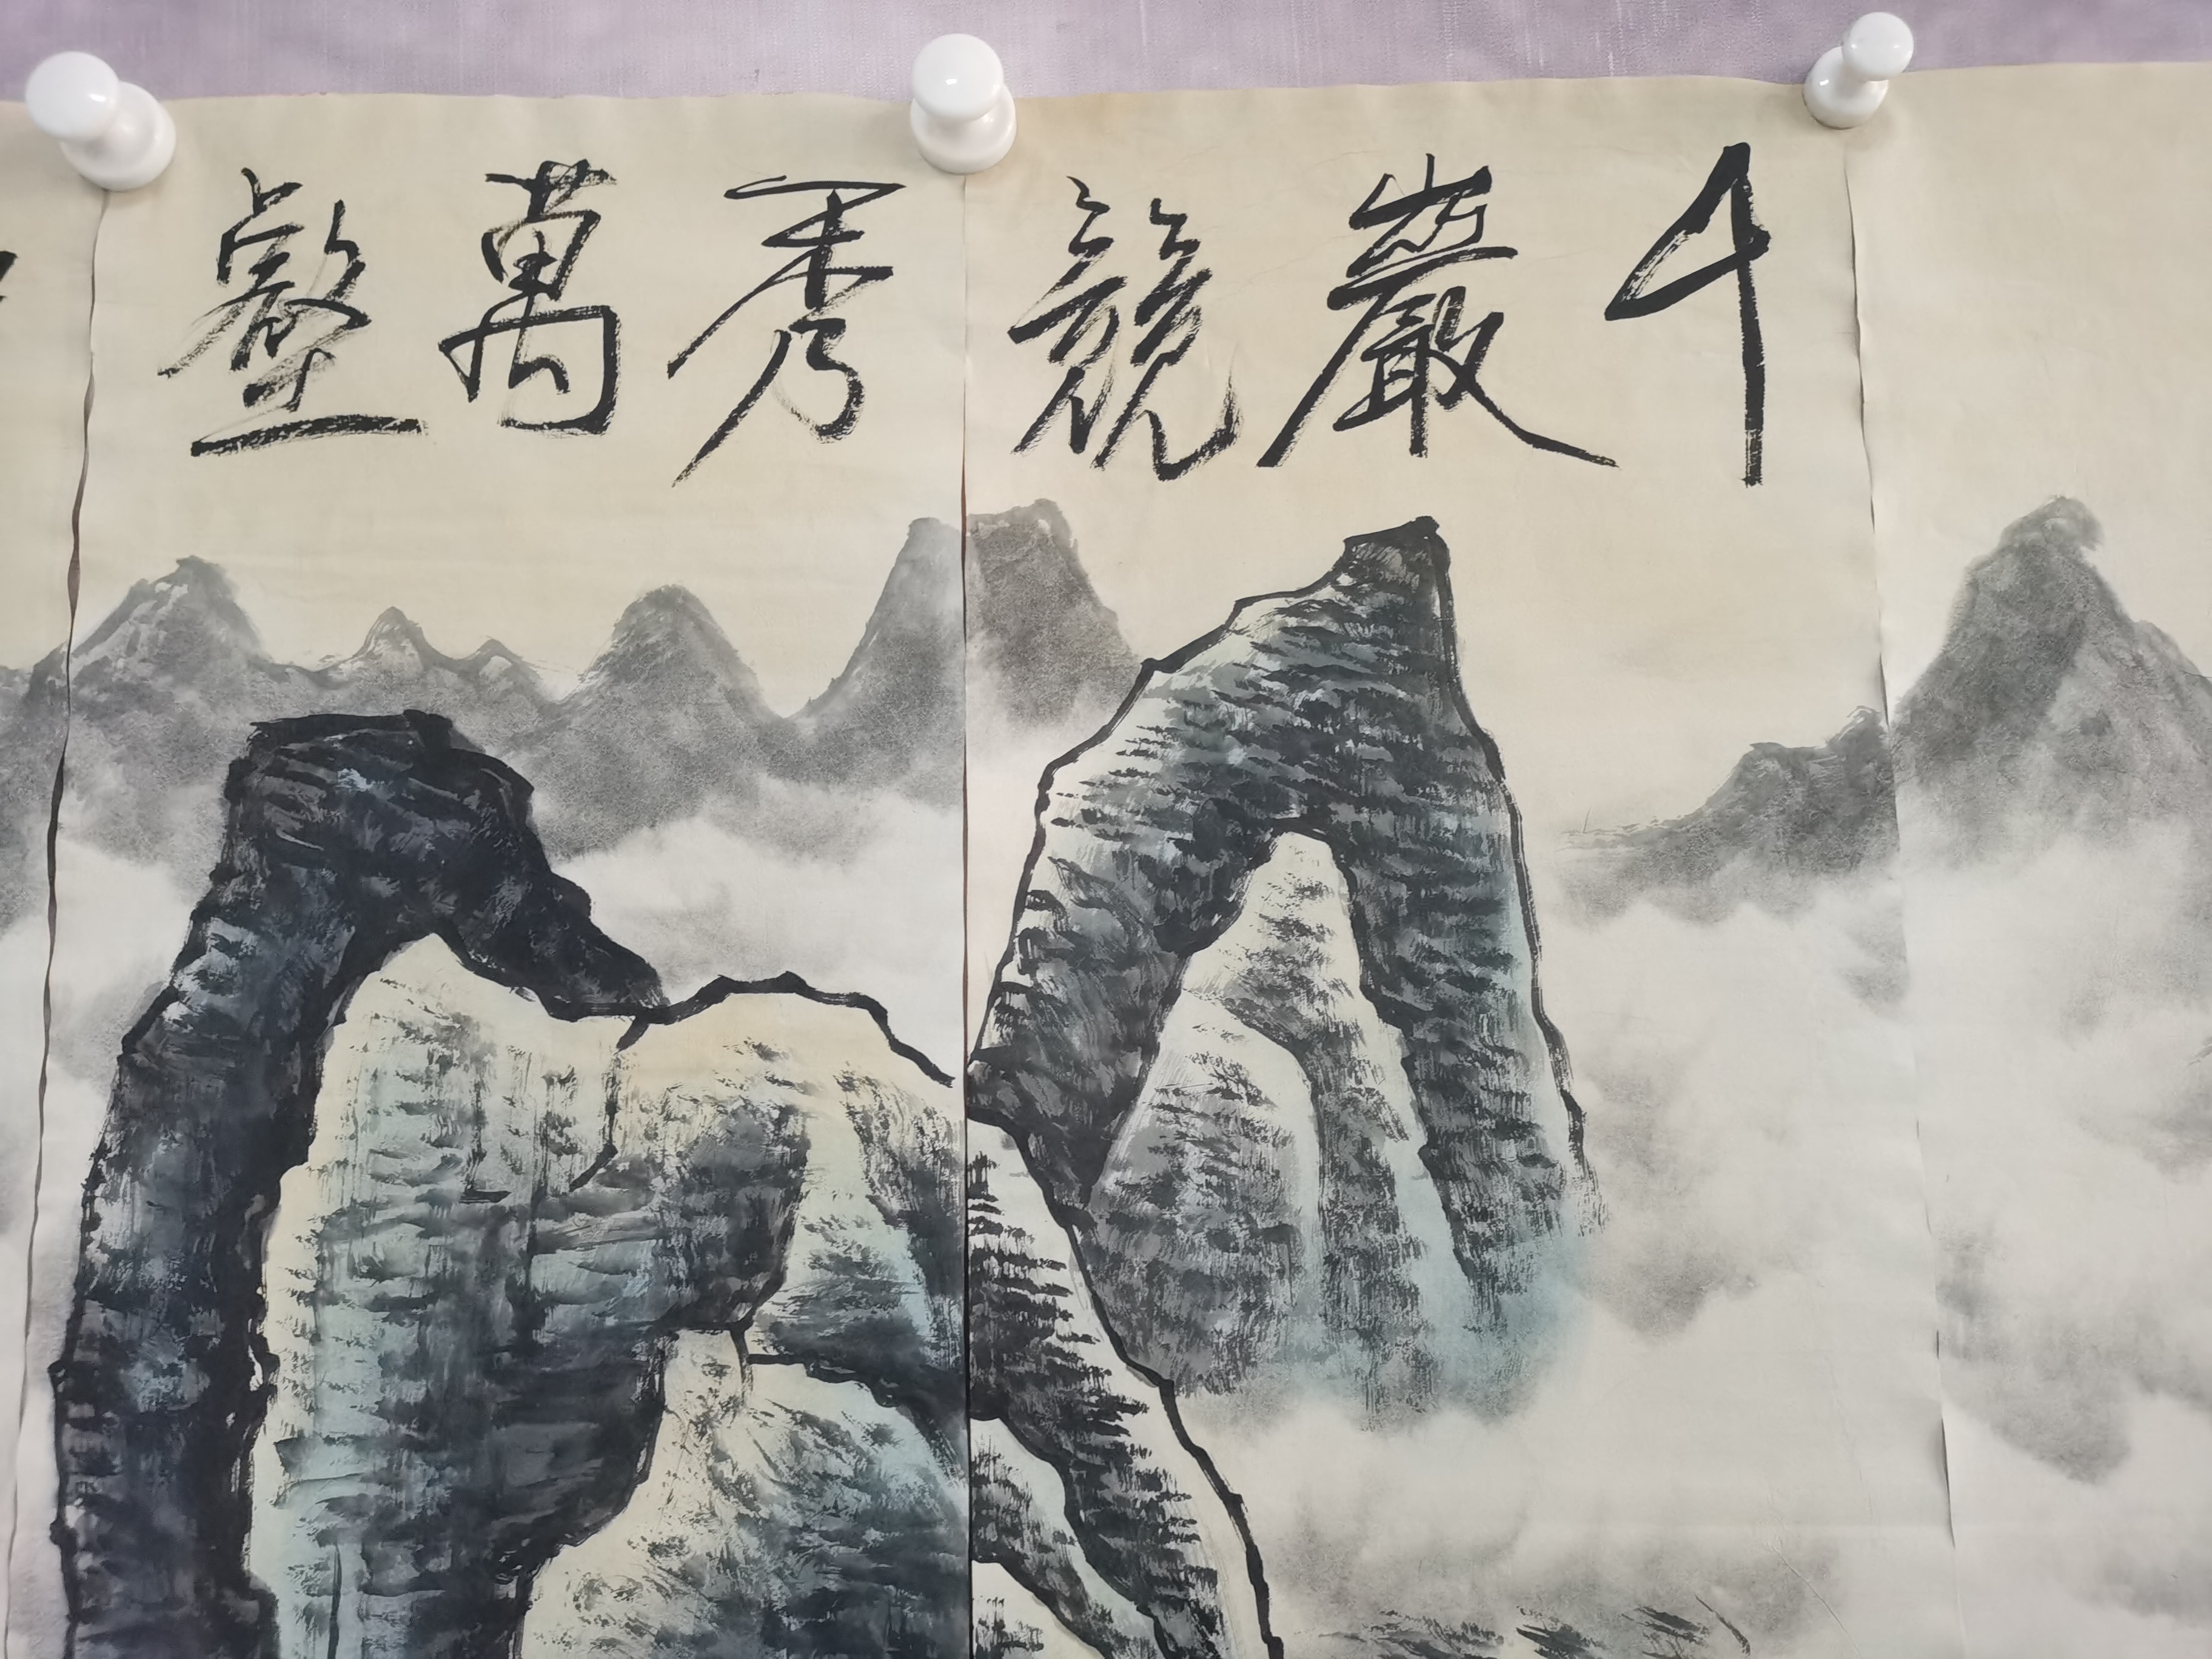 千巖競秀萬壑